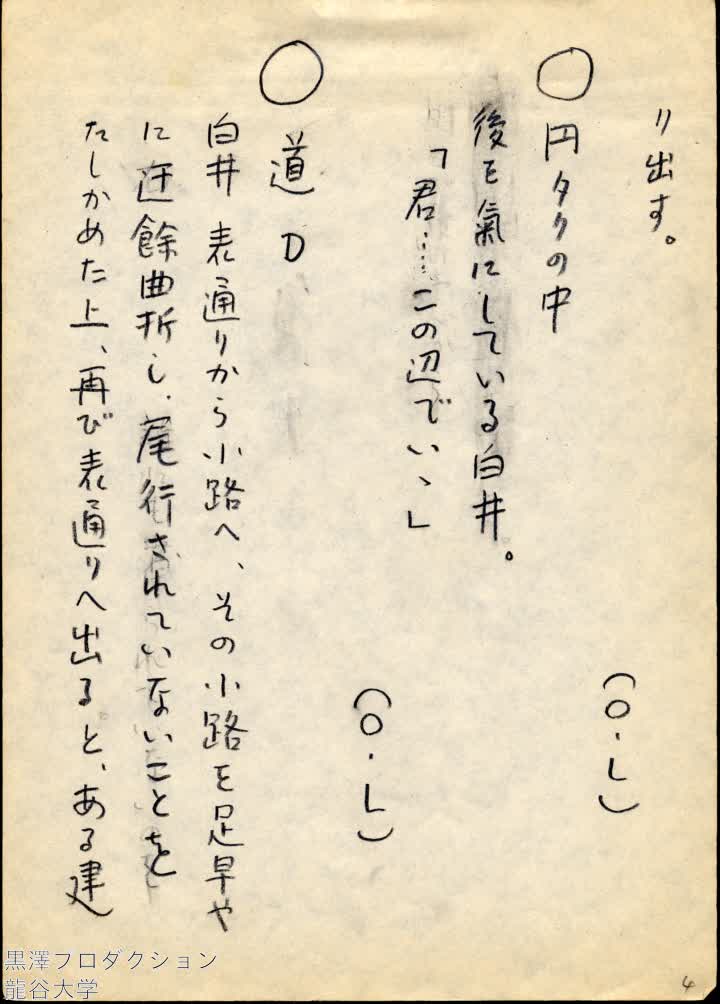 り出す。
(O・L)
○ 円タクの中
後を氣にしている白井。
「君……この辺でいゝ」
(O・L)
○ 道 D
白井 表通りから小路へ、その小路を足早や
に迂餘曲折し、尾行されていないことを
たしかめた上、再び表通りへ出ると、ある建
4
黒澤プロダクション
龍谷大学